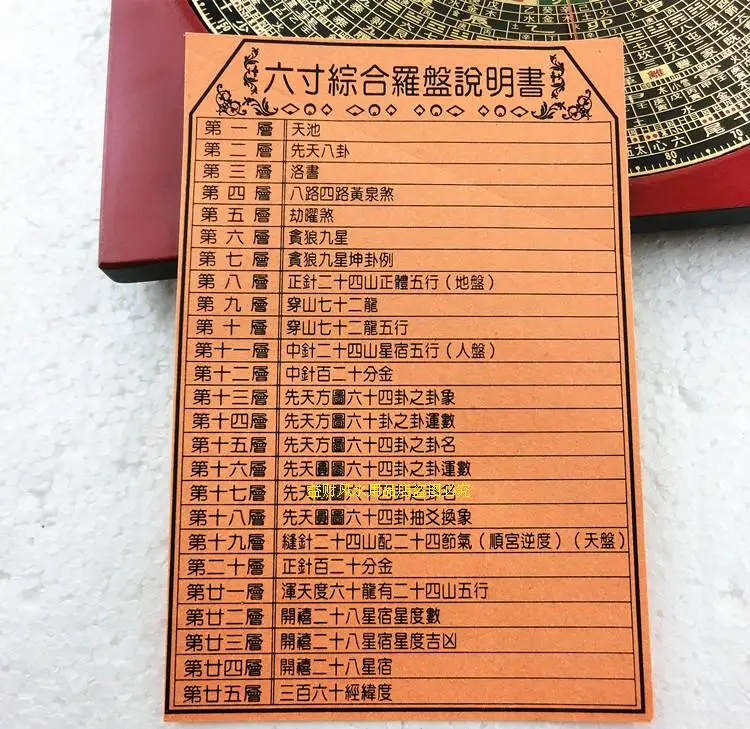 六寸綜合羅盤說明書
第一層 天池
第二層 先天八卦
第三層 洛書
第四層 八路四路黃泉煞
第五層 劫曜煞
第六層 貪狼九星
第七層 貪狼九星坤卦例
第八層 正針二十四山正體五行(地盤)
第九層 穿山七十二龍
第十層 穿山七十二龍五行
第十一層 中針二十四山星宿五行(人盤)
第十二層 中針百二十分金
第十三層 先天方圖六十四卦之卦象
第十四層 先天方圖六十卦之卦運數
第十五層 先天方圖六十四卦之卦名
第十六層 先天圓圖六十四卦之卦運數
第十七層 先天圓圖六十四卦之卦名
第十八層 先天圓圖六十四卦抽爻換象
第十九層 縫針二十四山配二十四節氣(順宮逆度)(天盤)
第二十層 正針百二十分金
第廿一層 渾天度六十龍有二十四山五行
第廿二層 開禧二十八星宿星度數
第廿三層 開禧二十八星宿星度吉凶
第廿四層 開禧二十八星宿
第廿五層 三百六十經緯度